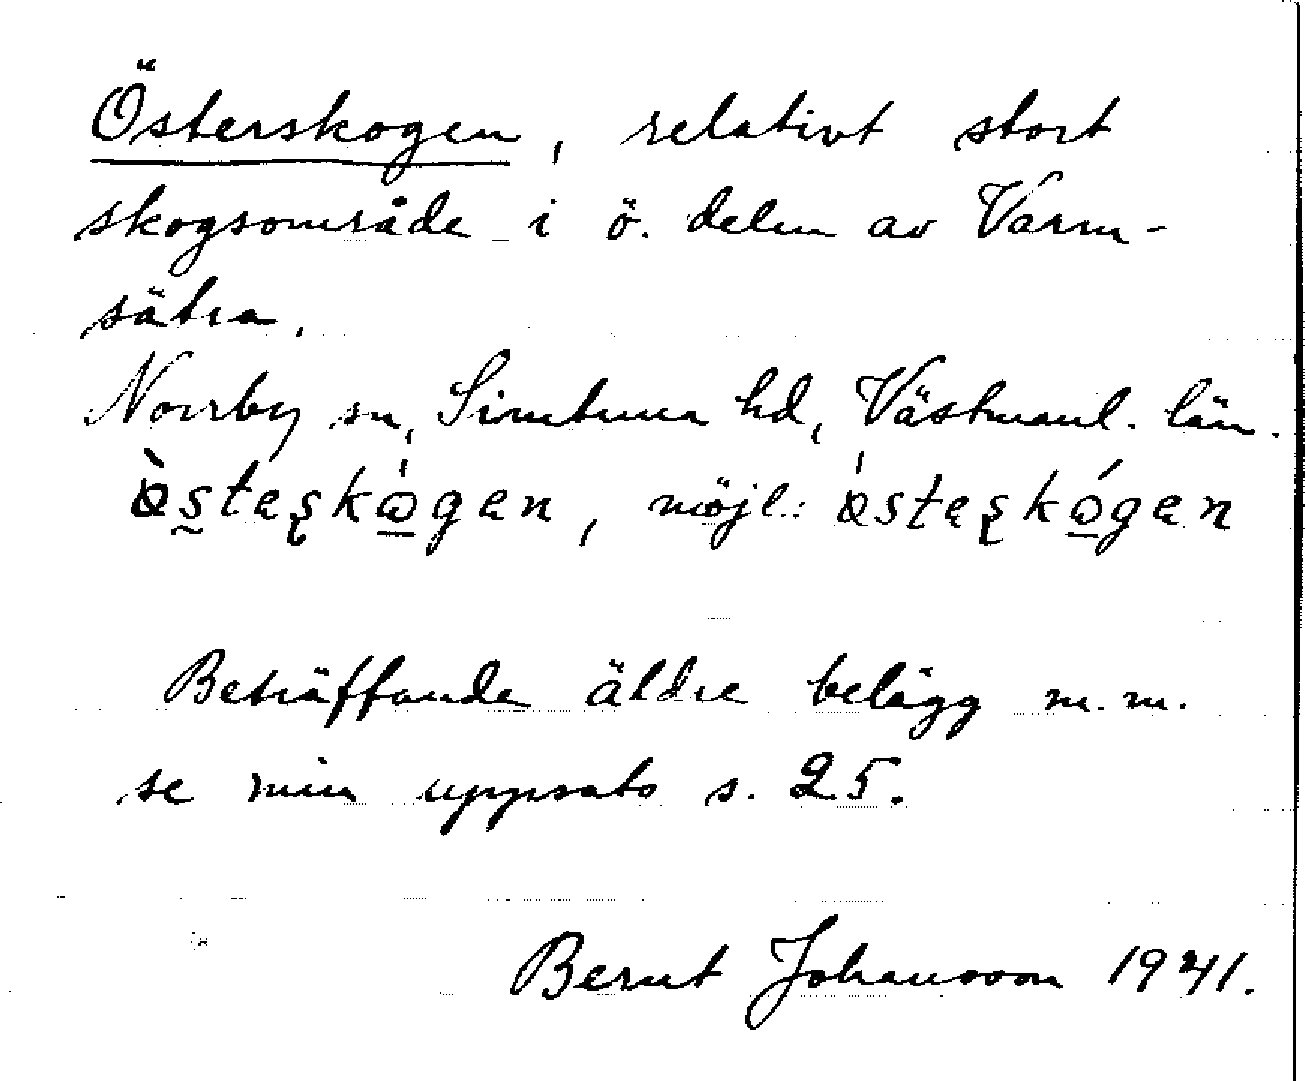 Österskogen, relativt stort
skogsområde i ö. delen av Varm-
sätra.
Norrby sn, Simtuna hd, Västmanl. län.
ö̀steʂkɷ́gen, möjl.: östeʂkɷ́gen
Beträffande äldre belägg m.m.
se min uppsats s. 25.
Bernt Johansson 1941.